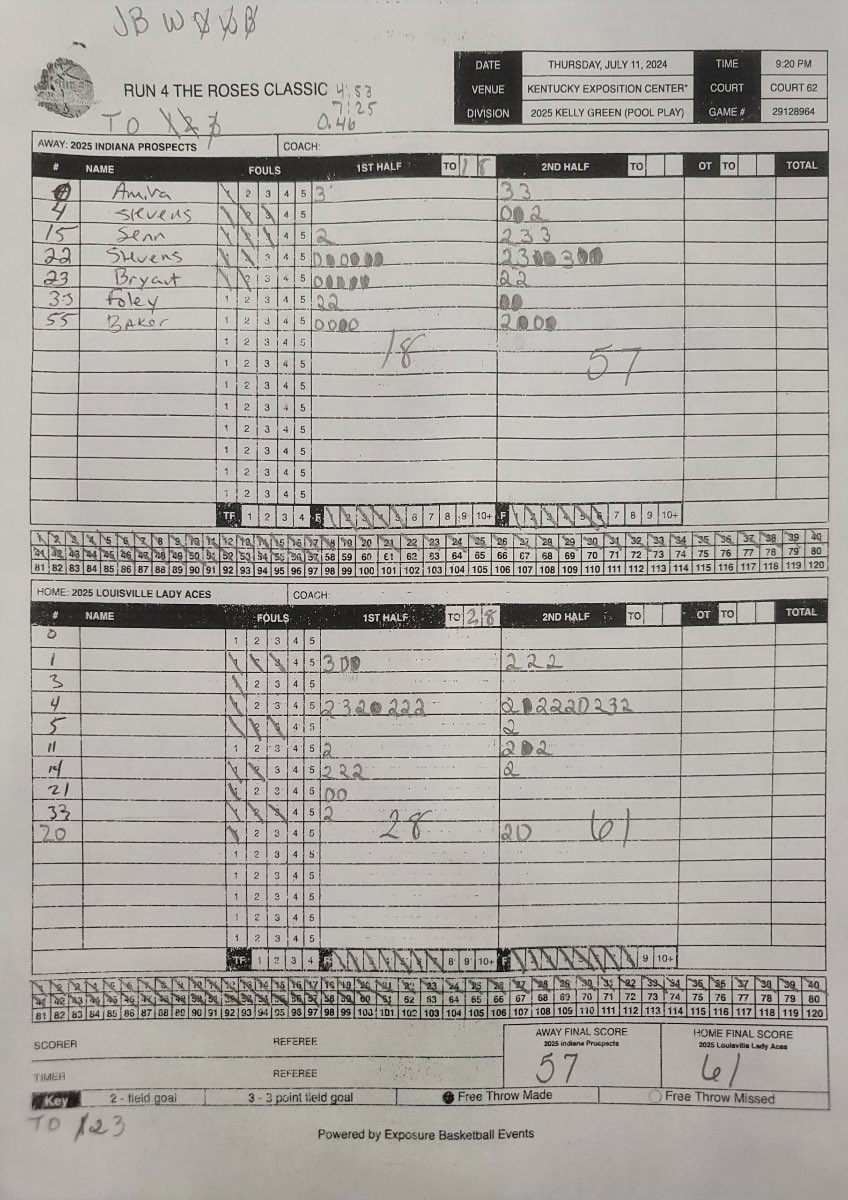 JB W
DATE THURSDAY, JULY 11, 2024 TIME 9:20 PM
RUN 4 THE ROSES CLASSIC 4:53
VENUE KENTUCKY EXPOSITION CENTER* COURT COURT 62
7:25
DIVISION 2025 KELLY GREEN (POOL PLAY) GAME # 29128964
TO 1 2 3 0.46
AWAY: 2025 INDIANA PROSPECTS COACH:
# NAME FOULS 1ST HALF TO 1 8 2ND HALF TO OT TO TOTAL
1 2 3 4 5 3 33
4 Stevens 1 2 3 4 5 002
15 Senn 1 2 3 4 5 2 233
22 Stevens 1 2 3 4 5 000000 2300300
23 Bryant 1 2 3 4 5 00000 22
33 Foley 1 2 3 4 5 22 00
55 BAKER 1 2 3 4 5 0000 2000
1 2 3 4 5 18
1 2 3 4 5 57
1 2 3 4 5
1 2 3 4 5
1 2 3 4 5
1 2 3 4 5
1 2 3 4 5
1 2 3 4 5
TF 1 2 3 4 F 1 2 3 4 5 6 7 8 9 10+ F 1 2 3 4 5 6 7 8 9 10+
1 2 3 4 5 6 7 8 9 10 11 12 13 14 15 16 17 18 19 20 21 22 23 24 25 26 27 28 29 30 31 32 33 34 35 36 37 38 39 40
41 42 43 44 45 46 47 48 49 50 51 52 53 54 55 56 57 58 59 60 61 62 63 64 65 66 67 68 69 70 71 72 73 74 75 76 77 78 79 80
81 82 83 84 85 86 87 88 89 90 91 92 93 94 95 96 97 98 99 100 101 102 103 104 105 106 107 108 109 110 111 112 113 114 115 116 117 118 119 120
HOME: 2025 LOUISVILLE LADY ACES COACH:
# NAME FOULS 1ST HALF TO 2 8 2ND HALF TO OT TO TOTAL
0 1 2 3 4 5
1 1 2 3 4 5 300 222
3 1 2 3 4 5
4 1 2 3 4 5 2320222 202220232
5 1 2 3 4 5 2
11 1 2 3 4 5 2 202
14 1 2 3 4 5 222 2
21 1 2 3 4 5 00
33 1 2 3 4 5 2
20 1 2 3 4 5 28 20 61
1 2 3 4 5
1 2 3 4 5
1 2 3 4 5
1 2 3 4 5
1 2 3 4 5
TF 1 2 3 4 F 1 2 3 4 5 6 7 8 9 10+ F 1 2 3 4 5 6 7 8 9 10+
1 2 3 4 5 6 7 8 9 10 11 12 13 14 15 16 17 18 19 20 21 22 23 24 25 26 27 28 29 30 31 32 33 34 35 36 37 38 39 40
41 42 43 44 45 46 47 48 49 50 51 52 53 54 55 56 57 58 59 60 61 62 63 64 65 66 67 68 69 70 71 72 73 74 75 76 77 78 79 80
81 82 83 84 85 86 87 88 89 90 91 92 93 94 95 96 97 98 99 100 101 102 103 104 105 106 107 108 109 110 111 112 113 114 115 116 117 118 119 120
SCORER REFEREE
AWAY FINAL SCORE HOME FINAL SCORE
2025 Indiana Prospects 2025 Louisville Lady Aces
TIMER REFEREE 57 61
Key 2 - field goal 3 - 3 point field goal Free Throw Made Free Throw Missed
TO 123
Powered by Exposure Basketball Events